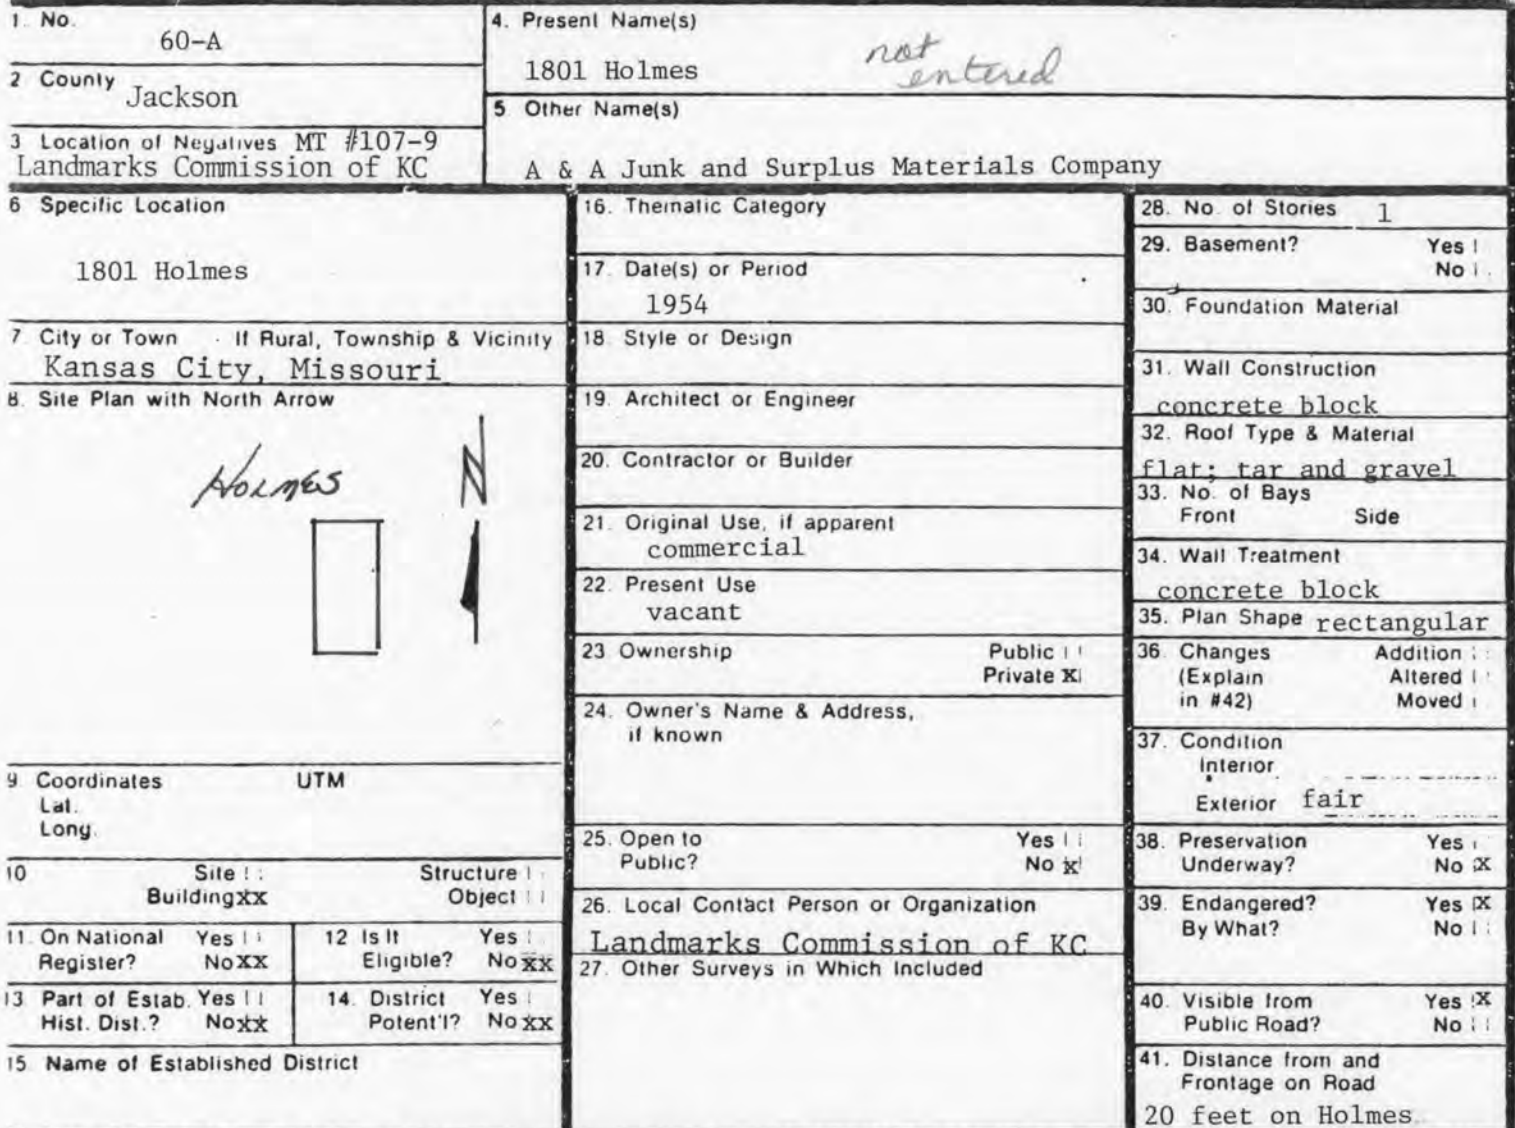 1. No.
60-A
2 County Jackson
3 Location of Negatives MT #107-9
Landmarks Commission of KC
4. Present Name(s)
1801 Holmes
not
entered
5 Other Name(s)
A & A Junk and Surplus Materials Company
6 Specific Location
1801 Holmes
7 City or Town If Rural, Township & Vicinity
Kansas City, Missouri
8. Site Plan with North Arrow
HOLMES N
9 Coordinates UTM
Lat.
Long.
10 Site Structure
Building XX Object
11. On National Yes
Register? No XX
12 Is It Yes
Eligible? No XX
13 Part of Estab. Yes
Hist. Dist.? No XX
14. District Yes
Potent'l? No XX
15 Name of Established District
16. Thematic Category
17. Date(s) or Period
1954
18. Style or Design
19. Architect or Engineer
20. Contractor or Builder
21. Original Use, if apparent
commercial
22. Present Use
vacant
23 Ownership Public
Private X
24. Owner's Name & Address,
if known
25. Open to Yes
Public? No X
26. Local Contact Person or Organization
Landmarks Commission of KC
27. Other Surveys in Which Included
28. No. of Stories 1
29. Basement? Yes
No
30. Foundation Material
31. Wall Construction
concrete block
32. Roof Type & Material
flat; tar and gravel
33. No. of Bays
Front Side
34. Wall Treatment
concrete block
35. Plan Shape rectangular
36. Changes Addition
(Explain Altered
in #42) Moved
37. Condition
Interior
Exterior fair
38. Preservation Yes
Underway? No X
39. Endangered? Yes X
By What? No
40. Visible from Yes X
Public Road? No
41. Distance from and
Frontage on Road
20 feet on Holmes